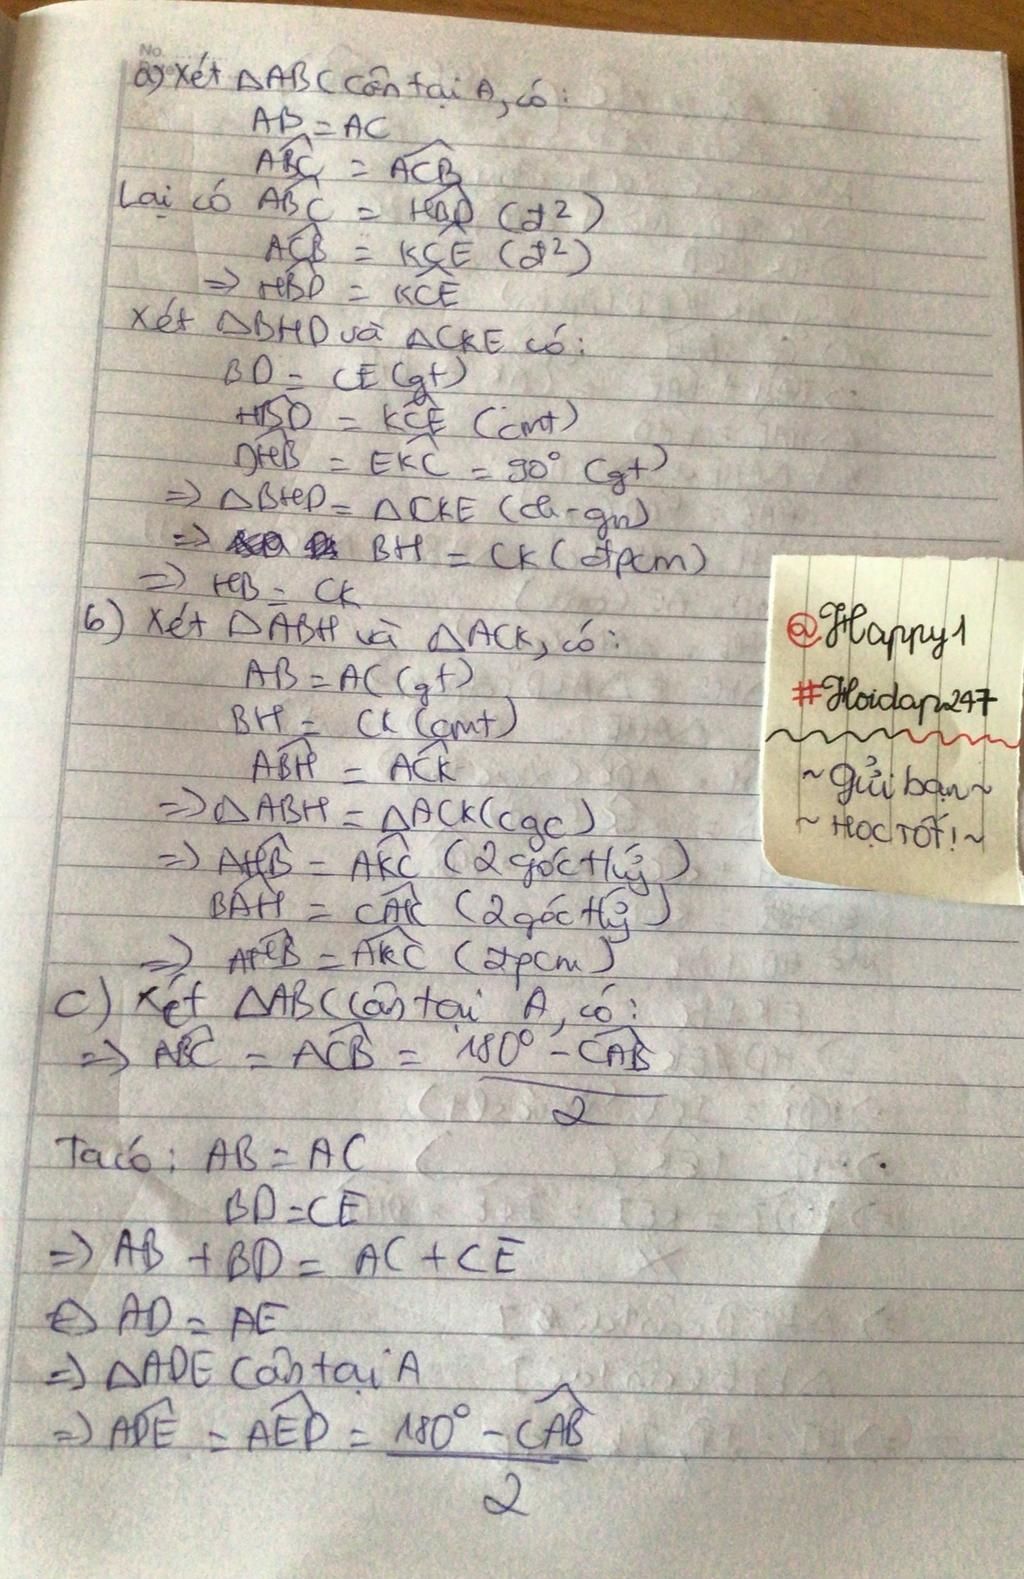 No.
a) Xét △ABC cân tại A, có:
AB = AC
ABC = ACB
Lại có ABC = HBD (đ²)
ACB = KCE (đ²)
=> HBD = KCE
Xét △BHD và △CKE có:
BD = CE (gt)
HBD = KCE (cmt)
DHB = EKC = 90° (gt)
=> △BHD = △CKE (ch-gn)
=> BH = CK (đpcm)
=> HB = CK
b) Xét △ABH và △ACK, có:
AB = AC (gt)
BH = CK (cmt)
ABH = ACK
=> △ABH = △ACK (cgc)
=> AHB = AKC (2 góc tứ)
BAH = CAK (2 góc tứ)
=> AHB = AKC (đpcm)
c) Xét △ABC cân tại A, có:
=> ABC = ACB = 180° - CAB
2
Ta có: AB = AC
BD = CE
=> AB + BD = AC + CE
<=> AD = AE
=> △ADE cân tại A
=> ADE = AED = 180° - CAB
2
@Happy1
#Hoidap247
~ Gửi bạn ~
~ Học tốt! ~